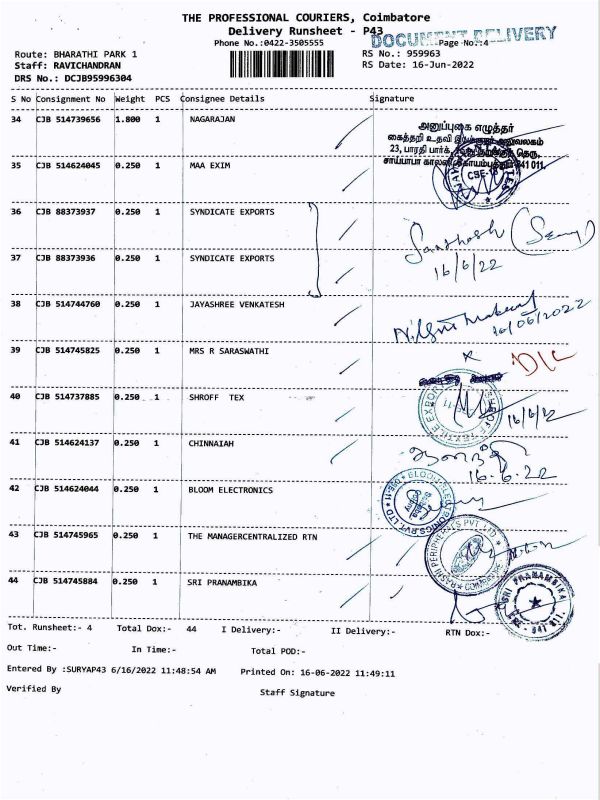 THE PROFESSIONAL COURIERS, Coimbatore
Delivery Runsheet - P43
DOCUMENT DELIVERY
Phone No.:0422-3505555
Page No.:4
Route: BHARATHI PARK 1
RS No.: 959963
Staff: RAVICHANDRAN
RS Date: 16-Jun-2022
DRS No.: DCJB95996304
S No Consignment No Weight PCS Consignee Details Signature
34 CJB 514739656 1.800 1 NAGARAJAN
அனுப்புகை எழுத்தர்
கைத்தறி உதவி அலுவலகம்
23, பாரதி பார்க், தெரு,
சாய்பாபா காலனி, கோயம்புத்தூர்-641 011.
35 CJB 514624045 0.250 1 MAA EXIM
CBE-
36 CJB 88373937 0.250 1 SYNDICATE EXPORTS
Santhosh
37 CJB 88373936 0.250 1 SYNDICATE EXPORTS
16/6/22
38 CJB 514744760 0.250 1 JAYASHREE VENKATESH
16/06/2022
39 CJB 514745825 0.250 1 MRS R SARASWATHI
D/L
40 CJB 514737885 0.250 1 SHROFF TEX
16/6/22
41 CJB 514624137 0.250 1 CHINNAIAH
16.6.22
42 CJB 514624044 0.250 1 BLOOM ELECTRONICS
43 CJB 514745965 0.250 1 THE MANAGERCENTRALIZED RTN
RASHI PERIPHERALS PVT. LTD.
COIMBATORE
44 CJB 514745884 0.250 1 SRI PRANAMBIKA
SRI PRANAMBIKA
641 011.
Tot. Runsheet:- 4 Total Dox:- 44 I Delivery:- II Delivery:- RTN Dox:-
Out Time:- In Time:- Total POD:-
Entered By :SURYAP43 6/16/2022 11:48:54 AM Printed On: 16-06-2022 11:49:11
Verified By Staff Signature